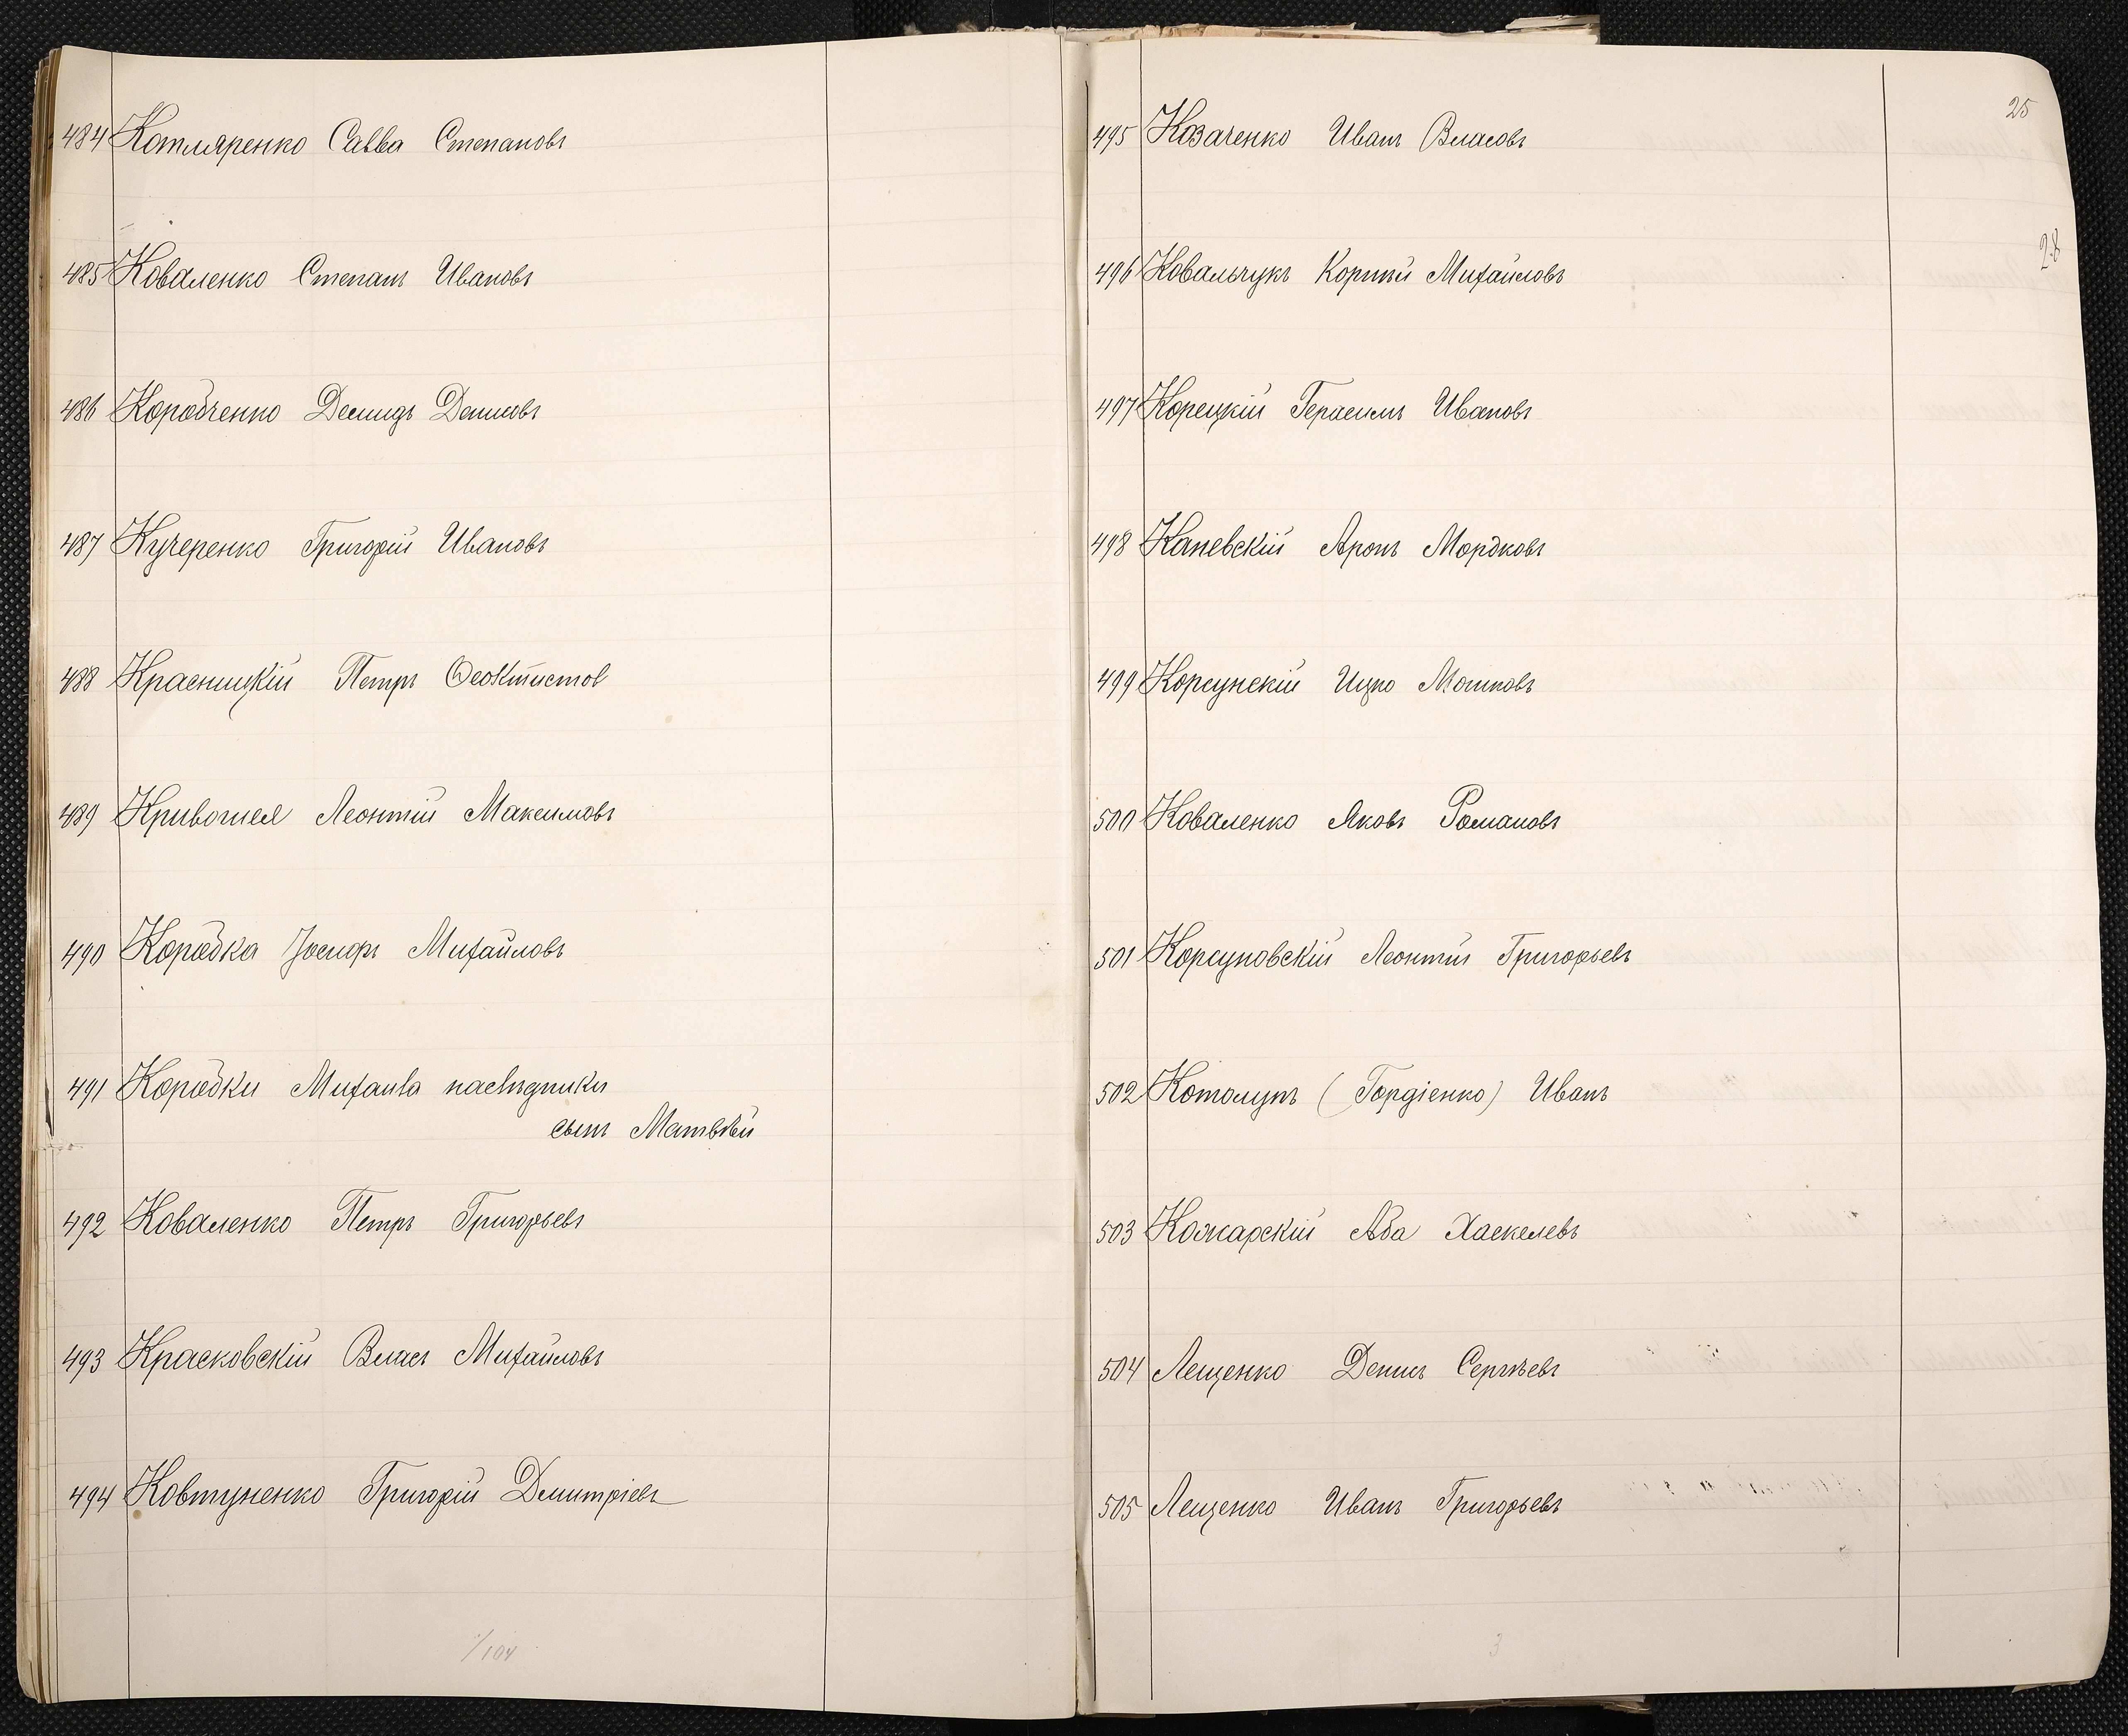 484 Котляренко Савва Степановъ
485 Коваленко Степанъ Ивановъ
486 Коробченко Демидъ Денисовъ
487 Кучеренко Григорій Ивановъ
488 Красницкій Петръ Ѳеоктистов
489 Кривошея Леонтій Максимовъ
490 Коробка Іосифъ Михайловъ
491 Коробки Михаила наслѣдники
сынъ Матвѣй
492 Коваленко Петръ Григорьевъ
493 Красковскій Власъ Михайловъ
494 Ковтуненко Григорій Дмитріевъ
1/104
25
28
495 Козаченко Иванъ Власовъ
496 Ковальчукъ Корнѣй Михайловъ
497 Корецкій Герасимъ Ивановъ
498 Каневскій Аронъ Мордковъ
499 Корсунскій Ицко Мошковъ
500 Коваленко Яковъ Романовъ
501 Корсуновскій Леонтій Григорьевъ
502 Котолупъ (Гордіенко) Иванъ
503 Кожарскій Аба Хаскелевъ
504 Лещенко Денисъ Сергѣевъ
505 Лещенко Иванъ Григорьевъ
3